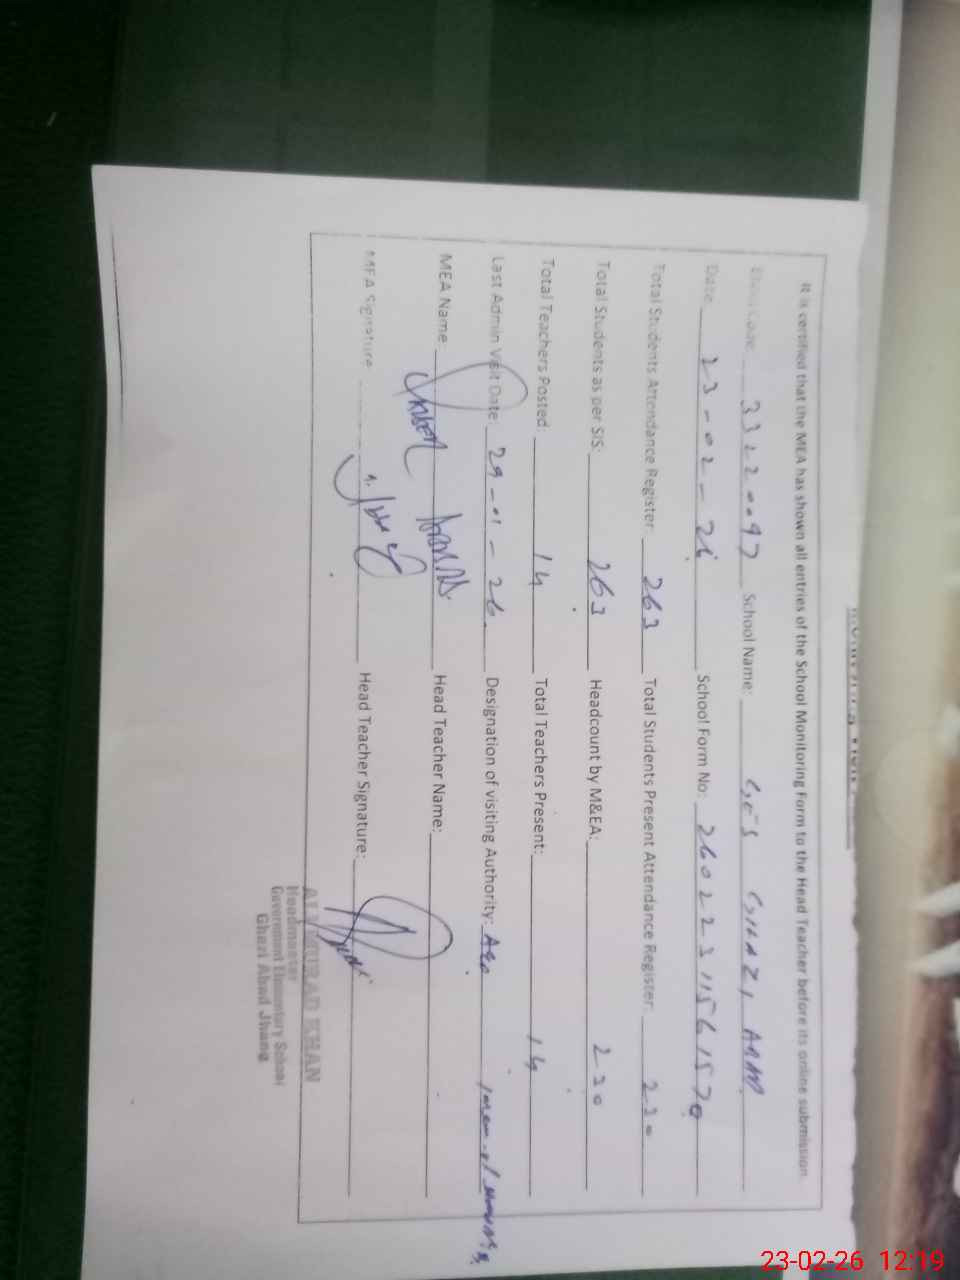 It is certified that the MEA has shown all entries of the School Monitoring Form to the Head Teacher before its online submission.
Code: 33220097 School Name: GES GHAZI ABAD
Date: 23-02-26 School Form No: 26022311561570
Total Students Attendance Register: 263 Total Students Present Attendance Register: 230
Total Students as per SIS: 263 Headcount by M&EA: 230
Total Teachers Posted: 14 Total Teachers Present: 14
Last Admin Visit Date: 29-01-26 Designation of visiting Authority: AEO
MEA Name Head Teacher Name:
MEA Signature Head Teacher Signature:
MURAD KHAN
Headmaster
Government Elementary School
Ghazi Abad Jhang
23-02-26 12:19